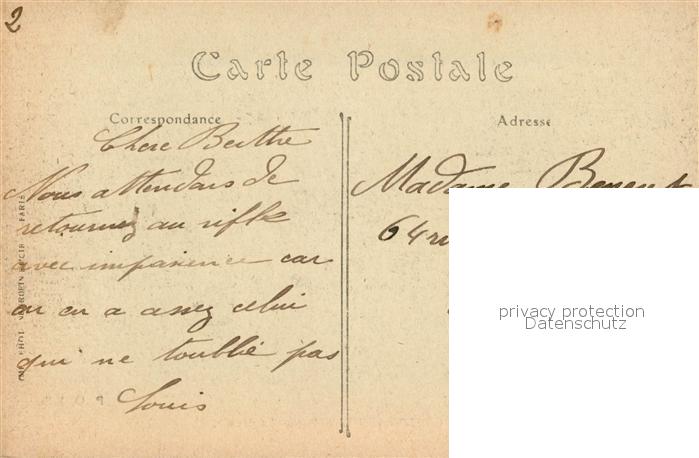 2
Carte Postale
Correspondance
Adresse
Chere Berthe
Nous attendons de
retournez au rifle
avec impasience car
on en a assez celui
qui ne toublie pas
Louis
Madame
64 ru
privacy protection
Datenschutz
PARIS